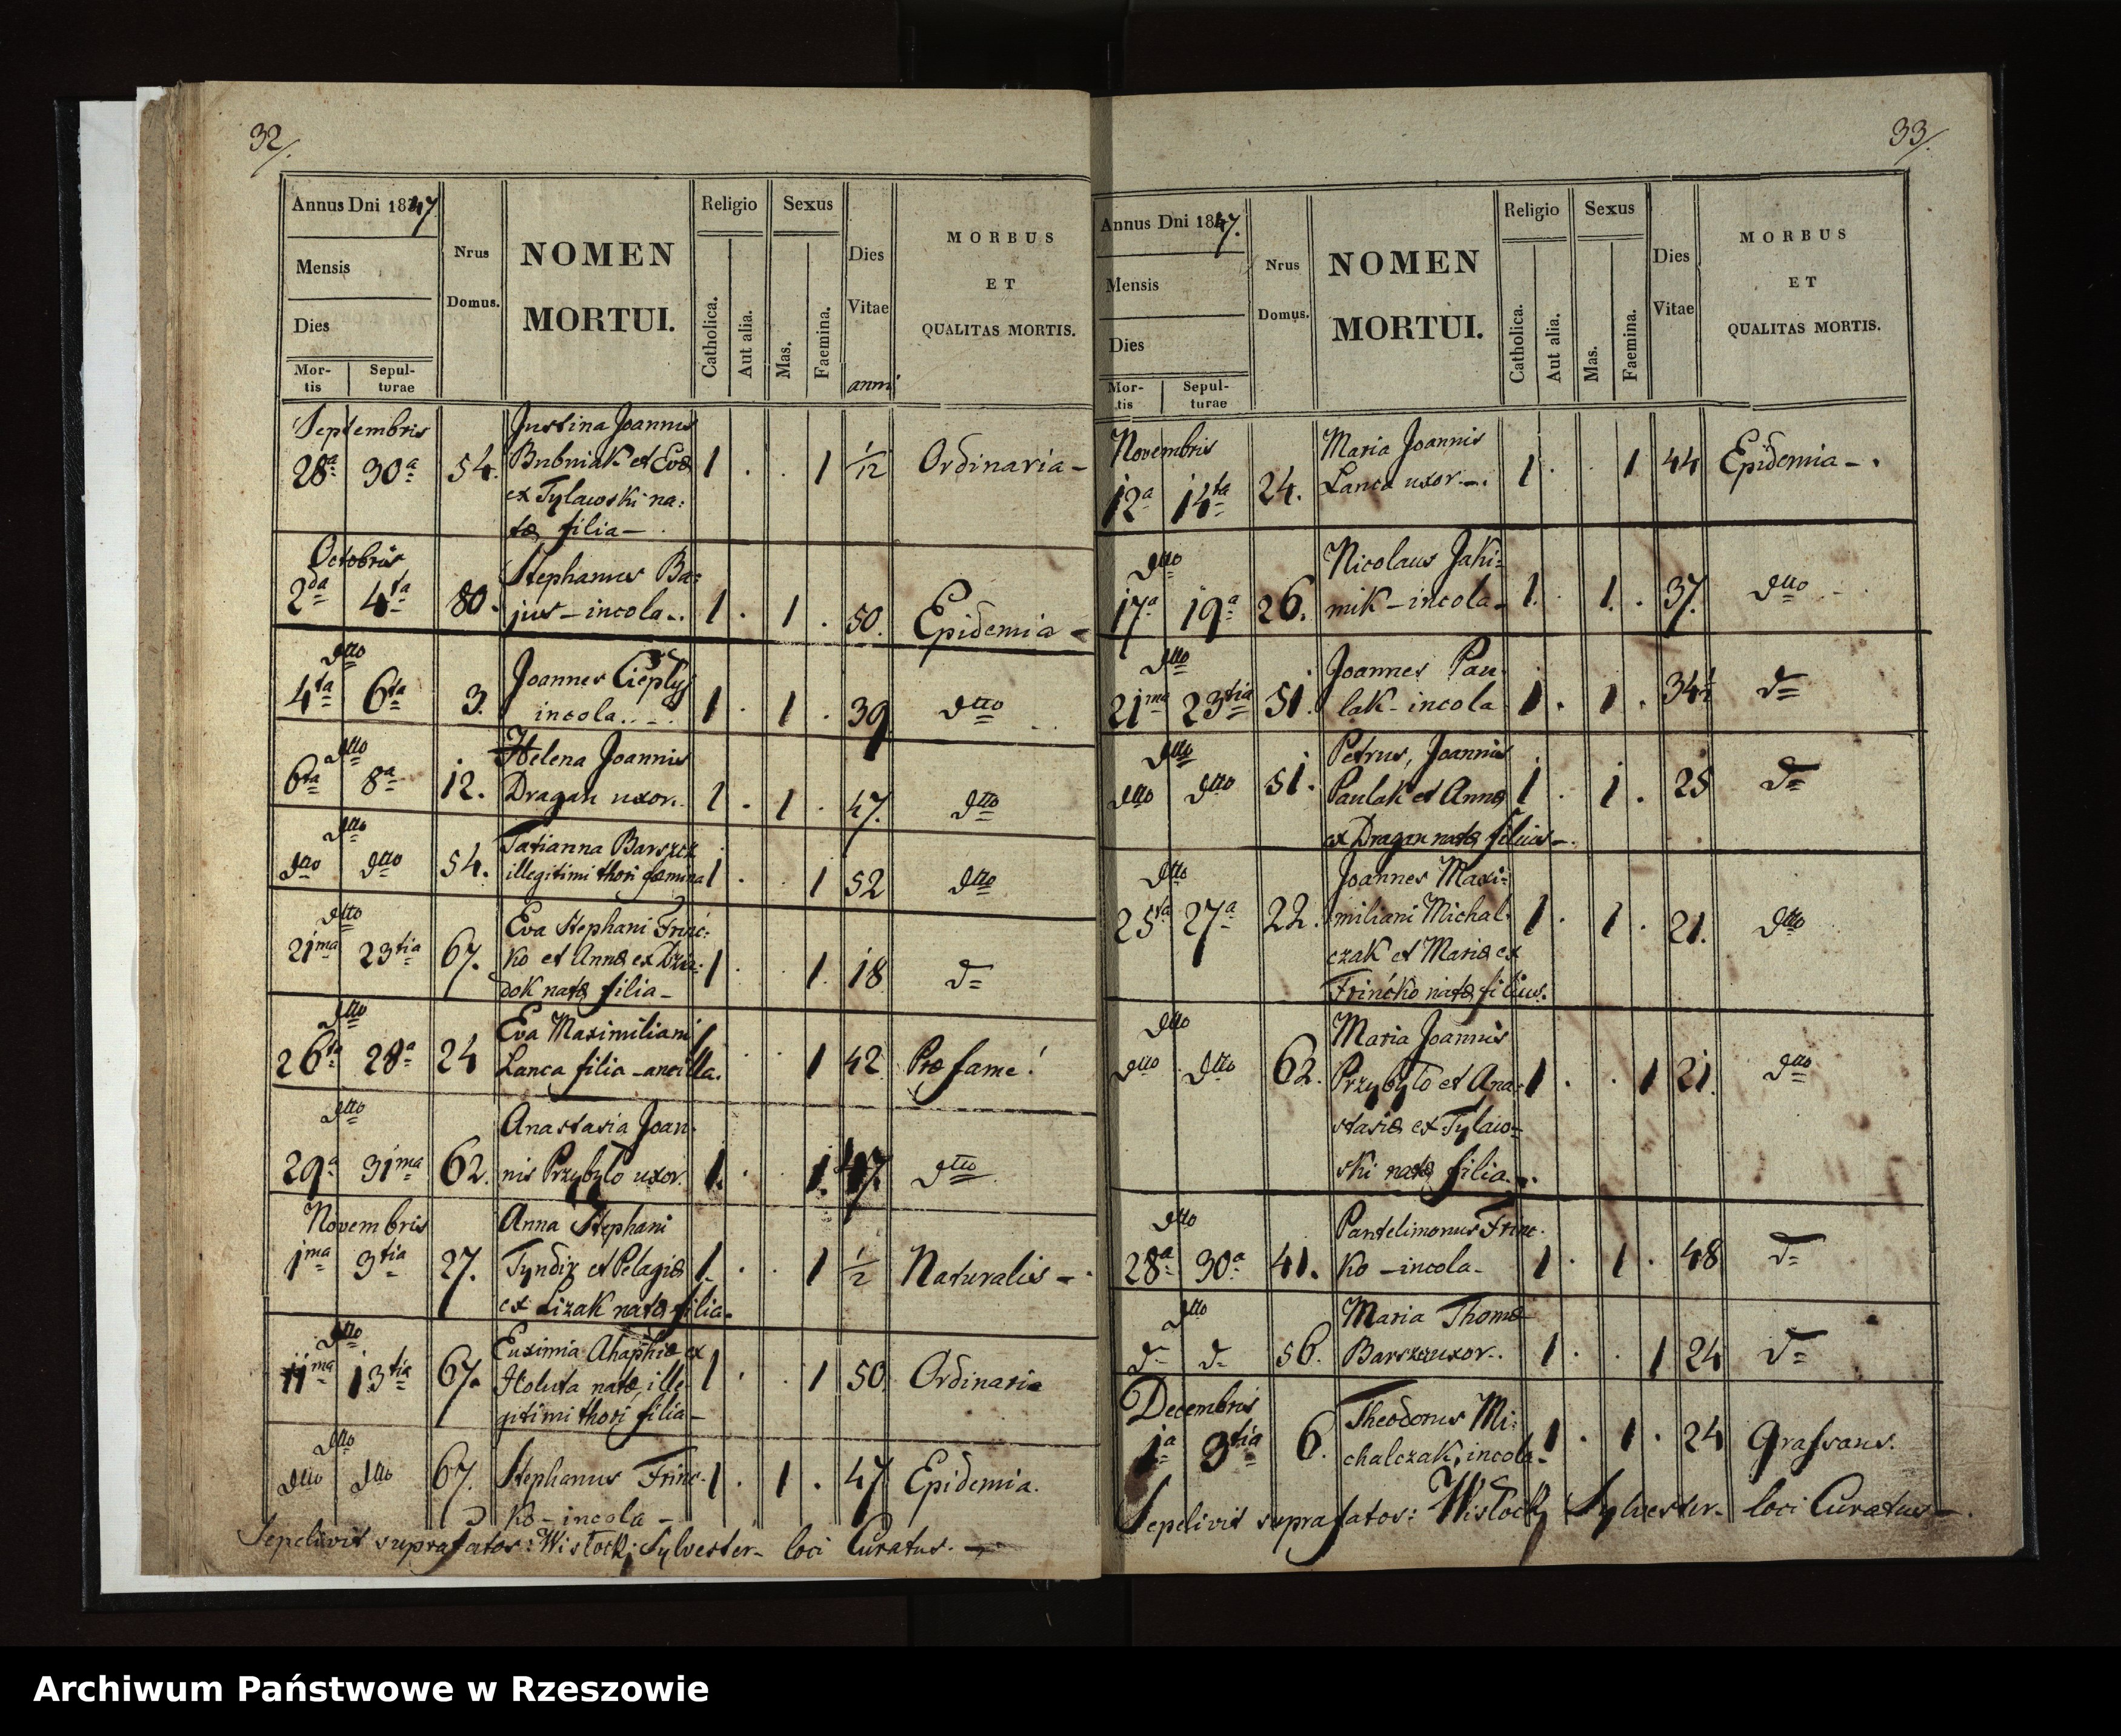 32/.
Annus Dni 1847
Mensis
Dies
Mor-
tis
Sepul-
turae
Nrus
Domus.
NOMEN
MORTUI.
Religio
Catholica.
Aut alia.
Sexus
Mas.
Faemina.
Dies
Vitae
anni
MORBUS
ET
QUALITAS MORTIS.
Septembris
Justina Joannis
28a 30a 54. Bubniak et Evæ 1 . . 1 1/12 Ordinaria –
ex Tylawski na:
tæ filia –
Octobris
Stephanus Ba:
2da 4ta 80. jus – incola . 1 . 1 . 50. Epidemia –
dtto
Joannes Cieplyj
4ta 6ta 3. incola . . 1 . 1 . 39 dtto
dtto
Helena Joannis
6ta 8a 12. Dragan uxor. 1 . 1 . 47. dtto
dtto
Tatianna Barszcz
dtto dtto 54. illegitimi thori fæmina 1 . . 1 52 dtto
dtto
Eva Stephani Frinć:
21ma 23tia 67. ko et Annæ ex Dzia: 1 . . 1 18 d=
dok natæ filia –
dtto
Eva Maximiliani
26ta 28a 24 Lanca filia – ancilla. 1 . . 1 42 Præ fame!
dtto
Anastasia Joan:
29a 31ma 62. nis Przybyło uxor. 1 . . 1. 47. dtto
Novembris
Anna Stephani
1ma 3tia 27. Tyndir et Pelagiæ 1 . . 1 1/2 Naturalis –
ex Lizak natæ filia.
dtto
Euximia Ahaphiæ ex
11ma 13tia 67. Holuta natæ, ille: 1 . . 1 50. Ordinaria
gitimi thori filia –
dtto
dtto dtto 67. Stephanus Frinc- 1 . 1 . 47 Epidemia.
ko – incola –
Sepelivit suprafatos: Wisłocki Sylvester – loci Curatus. –
33/.
Annus Dni 1847.
Mensis
Dies
Mor-
tis
Sepul-
turae
Nrus
Domus.
NOMEN
MORTUI.
Religio
Catholica.
Aut alia.
Sexus
Mas.
Faemina.
Dies
Vitae
MORBUS
ET
QUALITAS MORTIS.
Novembris
Maria Joannis
12a 14ta 24. Lanca uxor. –. 1 . 1 44 Epidemia – .
dtto
Nicolaus Jahi:
17a 19a 26. mik – incola – 1. 1 . 37. dtto
dtto
Joannes Pau:
21ma 23tia 51. lak – incola 1 . 1 . 34 d=
dtto
Petrus, Joannis
dtto dtto 51. Paulak et Annæ 1 . 1 . 25 d=
ex Dragan natæ filius –.
dtto
Joannes Maxi:
25ta 27a 22. miliani Michal: 1 . 1 . 21. dtto
czak et Mariæ ex
Frinćko natæ filius.
dtto
Maria Joannis
dtto dtto 62. Przybyło et Ana: 1 . . 1 21. dtto
stasiæ ex Tylaw=
ski natæ filia. –
dtto
Pantelimonus Frinc:
28a 30a 41. ko – incola – 1 . 1 . 48 d=
dtto
Maria Thomæ
d= d= 56. Barszcz uxor. 1 . . 1 24 d=
Decembris
Theodorus Mi:
1a 3tia 6. chalczak, incola. 1 . 1 . 24 Grassans.
Sepelivit suprafatos: Wisłocky Sylvester – loci Curatus –.
Archiwum Państwowe w Rzeszowie